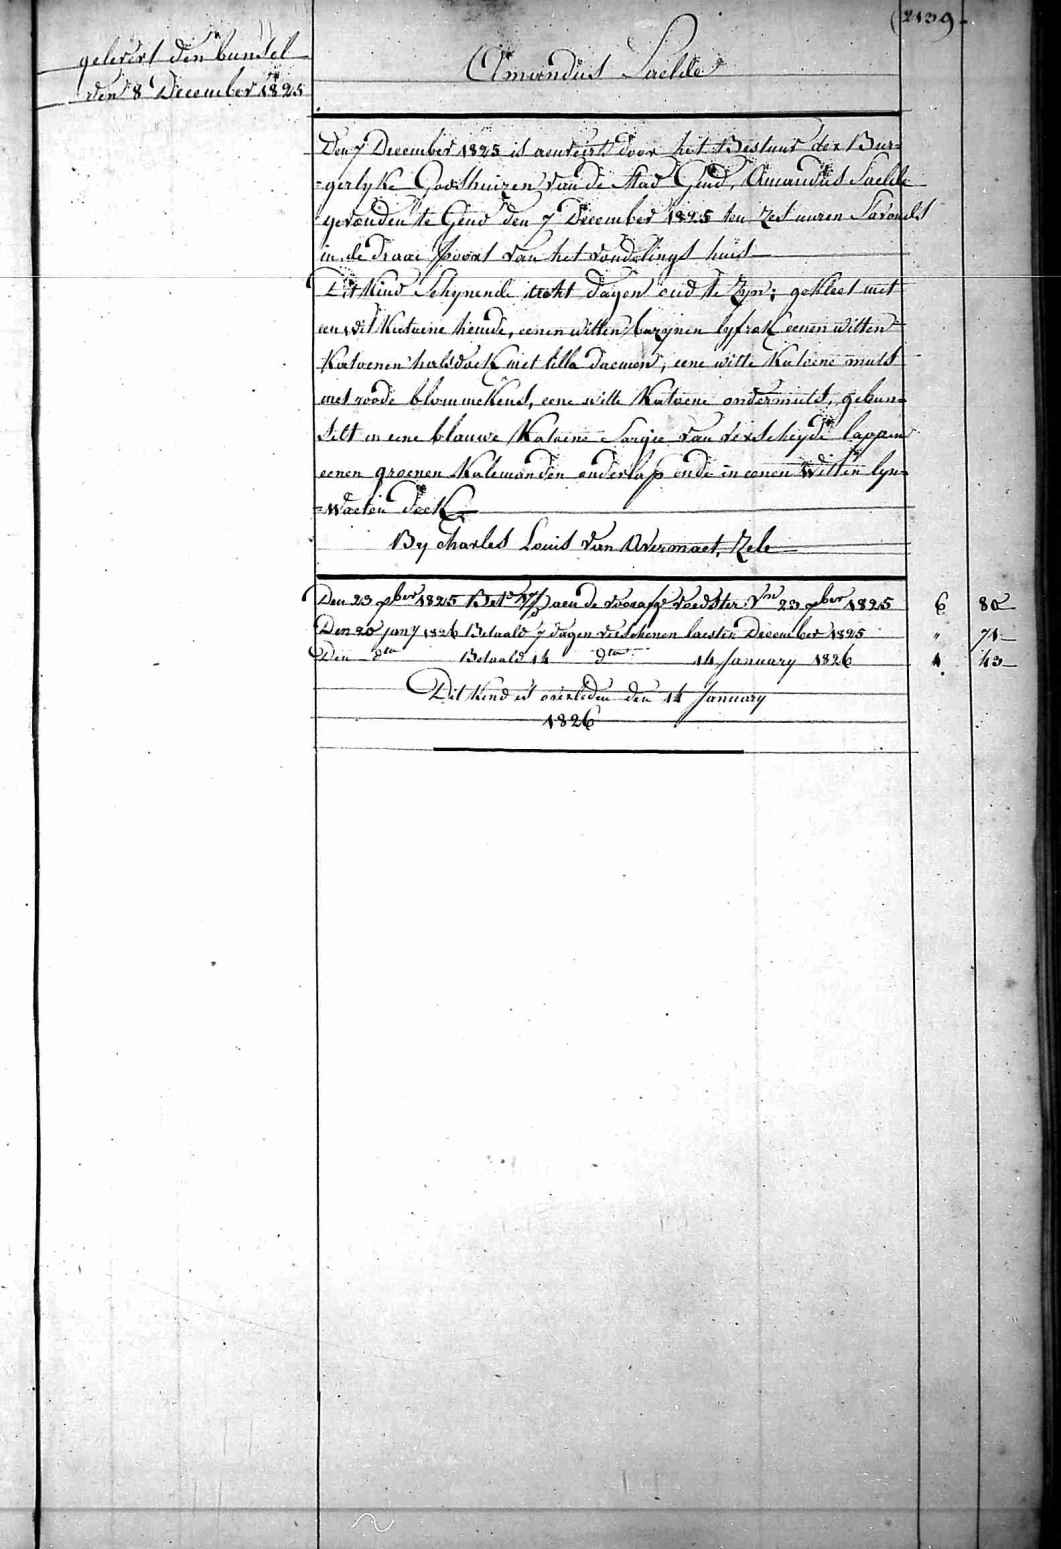 2139.
gelevert den bundel
den 8 December 1825
Amandus Saelde
Den 7 December 1825 is aenveirt door het Bestuur der Bur-
-gerlyke Godshuizen van de stad Gend, Amandus Saelde
gevonden te Gend den 7 December 1825 ten zes uuren Savonds
in de draai poort van het vondelings huis
Dit kind schynende acht dagen oud te zyn; gekleet met
een wit katoene hemde, eenen witten bazynen lyfrok eenen witten
katoenen halsdoek met, eene witte katoene muts
met roode blommekens, eene witte katoene ondermuts, gebun-
-delt in eene blauwe katoene Sargie van verscheyde lappen
eenen groenen kalemanden onderlap ende in eenen witten lyn-
-waeten doek
By Charles Louis van Overmaet, Zele
Den 23 xber 1825 Bet aen de voedster 23 xber 1825 6 80
Den 20 jany 1826 Betaald 7 dagen verschenen laesten December 1825 " 71
Den dto Betaald 14 dto 14 January 1826 1 43
Dit kind is overleden den 14 January
1826